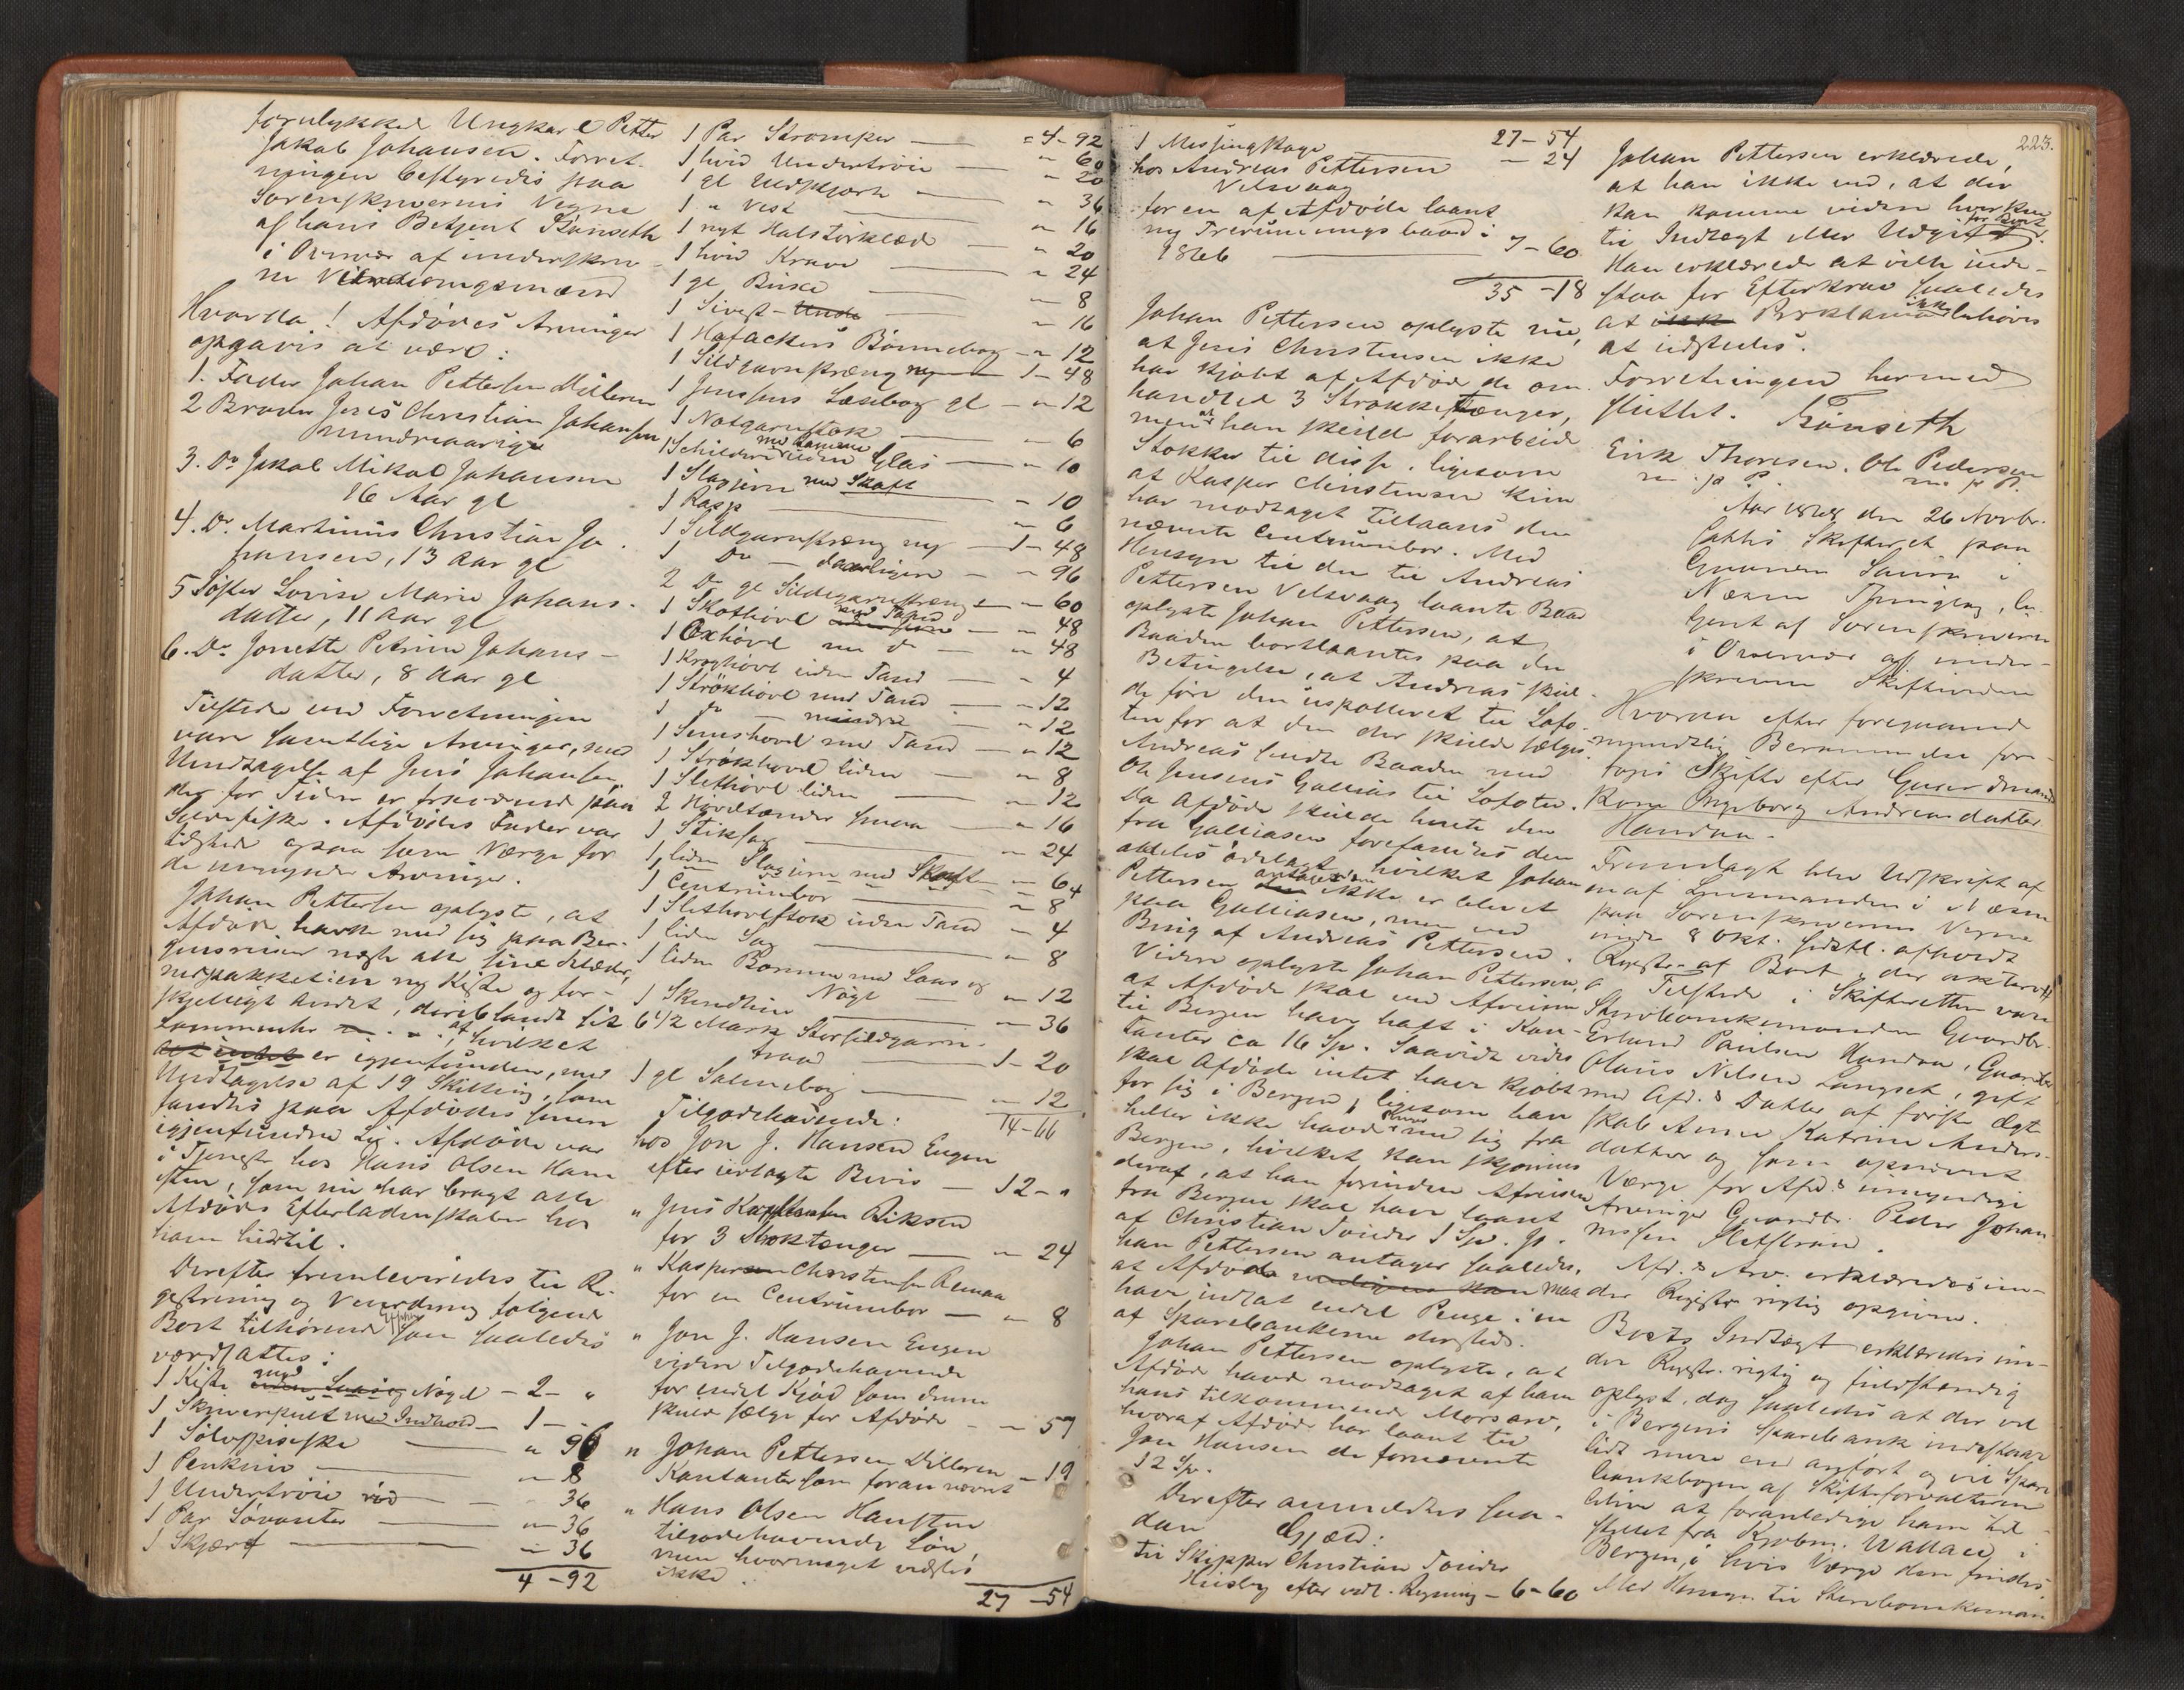 forulykket Ungkarl Petter
Jakob Johansen. Forret-
ningen bestyredes paa
Sorenskriverens Vegne
af hans Betjent Bönseth
i Overvær af underskrev-
ne Vurderingsmænd
Hvorda! Afdödes Arvinger
opgaves at være:
1. Fader Johan Pettersen Dilleren
2 Broder Jens Christian Johansen
myndreaarig
3. Do Jakob Mikal Johansen
16 Aar gl
4. Do Martinus Christian Jo-
hansen, 13 Aar gl
5 Söster Lovise Marie Johans-
datter, 11 Aar gl
6. Do Jonette Petrine Johans-
datter, 8 Aar gl
Tilstede ved Forretningen
vare samtlige Arvinger, med
Undtagelse af Jens Johansen,
der for Tiden er fraværende paa
Sildefiske. Afdödes Fader var
tilstede ogsaa som Værge for
de umyndige Arvinger.
Johan Pettersen oplyste, at
Afdöde havde med sig paa Ber-
gensreisen næste alle sine Klæder,
nedpakket i en ny Kiste og for-
skjelligt Andet, deriblandt sit
Lommeuhr, af hvilket
alt intet er igjenfunden, med
Undtagelse af 19 Skilling, som
fandtes paa Afdödes senere
igjenfundne Lig. Afdöde var
i Tjeneste hos Hans Olsen Ham
sten, som nu har bragt alle
Afdödes Efterladenskaber hos
ham hidtil.
Derefter fremleveredes til Re-
gistrering og Vurdering fölgende
Boet tilhörende Gjenst. som saaledes
værdsattes:
1 Kiste med Laas og Nögel - 2 - "
1 Skriverpult med Indhold - 1 - "
1 Sölvpiseske - " 96
1 Penkniv - " 8
1 Undertröie röd - " 36
1 Par Sövanter - " 36
1 Skjærf - " 36
4 - 92
1 Par Strömper - 4 - 92
1 hvid Undertröie - " 60
1 gl Uldskjorte - " 20
1 " Vest - " 36
1 nyt Halstörklæd - " 16
1 hvid Krave - " 20
1 gl Buxe - " 24
1 Sirts- - " 8
- " 16
1 Hafackers Bönnebog - " 12
1 Sildgarnstræng ny - 1 - 48
1 Jensens Læsebog gl - " 12
1 Notgarnstok - " 6
1 Schilderi med Ramme uden Glas - " 10
1 Slagjern med Skaft - " 10
1 Rasp - " 6
1 Sildgarnstræng ny - 1 - 48
1 Do - daarligere - " 96
2 Do gl Sildegarnstrænge - " 60
1 Skothövl med Tand - " 48
1 Oxhövl med do - " 48
1 Kroghövl uden Tand - " 4
1 Strökhövl med Tand - " 12
1 do - mindre - " 12
1 Simshövl med Tand - " 12
1 Strökhövl liden - " 8
1 Slethövl liden - " 12
2 Hövltænder smaa - " 16
1 Stiksag - " 24
1 liden Slagjern med Skaft - " 6
1 Centrumbor - " 8
1 Slethovlstok uden Tand - " 4
1 liden Sag - " 8
1 liden Bomme med Laas og
Nögl - " 12
1 Skindhue - " 36
6 1/2 Mark Storsildgarn-
traad - 1 - 20
1 gl Salmebog - " 12
14 - 66
Tilgodehavende:
hos Jon J. Hansen Eugen
efter fremlagte Bevis - 12 - "
" Jens Christensen Riksen
for 3 Stroktænger - " 24
" Kasper Christensen Remaa
for en Centrumbor - " 8
" Jon J. Hansen Eugen
videre Tilgodehavende
for endel Kjöd som denne
skulde sælge for Afdöde - " 57
" Johan Pettersen Dilleren - 19
Kontanter som foran nævnt
" Hans Olsen Hamsten
tilgodehavende Lön,
men hvormeget vidstes
ikke.
27 - 54
27 - 54
1 Messingkage - " 24
hos Andreas Pettersen
Velsvaag
for en af Afdöde laant
ny Treromningsbaad i
1866 - 7 - 60
35 - 18
Johan Pettersen oplyste nu,
at Jens Christensen ikke
har kjöbt af Afdöde de om-
handled 3 Stroktænger,
men at han skulde forarbeide
Stokker til disse, ligesom
at Kasper Christensen kun
har modtaget tillaans den
nævnte Centrumbor. Med
Hensyn til den til Andreas
Pettersen Velsvaag laante Baad
oplyste Johan Pettersen, at
Baaden bortlaantes paa den
Betingelse, at Andreas skul-
de före den uskadt til Lofo-
ten for at den der skulde sælges.
Andreas sendte Baaden med
Ole Jensens Gallias til Lofoten.
Da Afdöde skulde hente den
fra Galliasen forefandtes den
aldeles ödelagt, hvilket Johan
Pettersen antager den ikke er blevet
paa Galliasen, men ved
Brug af Andreas Pettersen.
Videre oplyste Johan Pettersen,
at Afdöde skal ved Afreisen
til Bergen have havt i Kon-
tanter ca 16 Sp. Saavidt vides
skal Afdöde intet have kjöbt
for sig i Bergen, ligesom han
heller ikke havde med sig fra
Bergen, hvilket kan skjönnes
deraf, at han forinden Afreisen
fra Bergen skal have laant
af Christian Tvieder 1 Sp. Jo-
han Pettersen antager saaledes,
at Afdöde maa
have indsat endel Penge i en
af Sparebankerne dersteds.
Johan Pettersen oplyste, at
Afdöde havde modtaget af ham
hans tilkommende Morsarv,
hvoraf Afdöde har laant til
Jon Hansen de fornævnte
12 Sp.
Derefter anmeldtes saa-
dan Gjæld:
til Skipper Christian Tvieder
Huisby efter vedl. Regning - 6 - 60
223.
Johan Pettersen erklærede,
at han ikke ved, at der
kan komme videre hverken
til Indtægt eller Udgift for Boet.
Han erklærede at ville inde-
staa for Efterkrav saaledes
at Proklama ikke behöves
at udstedes.
Forretningen hermed
sluttet.
Bönseth
Erik Thoresen. Ole Pedersen
m. p. P. m. p. P.
Aar 1868 den 26 Novbr.
sattes Skifteret paa
Gaarden Saura i
Næsne Thinglag, be-
tjent af Sorenskriveren
i Overvær af under-
skrevne Skiftevidner
Hvorda efter foregaaende
mundtlig Berammelse fore-
toges Skifte efter Gaardmands
Kone Ingeborg Andreasdatter
Handnæs.
Fremlagt blev Udskrift af
en af Lensmanden i Næsne
paa Sorenskriverens Vegne
under 8 Okt. sidstl. afholdt
Registr. af Boet, der akteredes
a Tilstede i Skifteretten vare
Stervboenkemanden Gaardbr.
Erlund Paulsen Handnæs, Gaardbr
Olaus Nilsen Langset, gift
med Afd.s Datter af förste Ægte-
skab Anne Katrine Anders-
datter og som opnævnt
Værge for Afd.s umyndige
Arvinger Gaardbr. Peder Johan
nessen Sletstrand.
Afd.s Arv. erklæredes un-
der Registr. rigtig opgivne.
Boets Indtægt erklæredes un-
der Registr. rigtig og fuldstændig
oplyst, dog saaledes at der vel
i Bergens Sparebank indestaar
lidt mere end anfört og vil Spare
bankbogen af Skifteforvalteren
blive at foranledige ham til-
stillet fra Kjøbm. Wallace i
Bergen, i hvis Værge den findes
Med Hensyn til Stervboenkeman